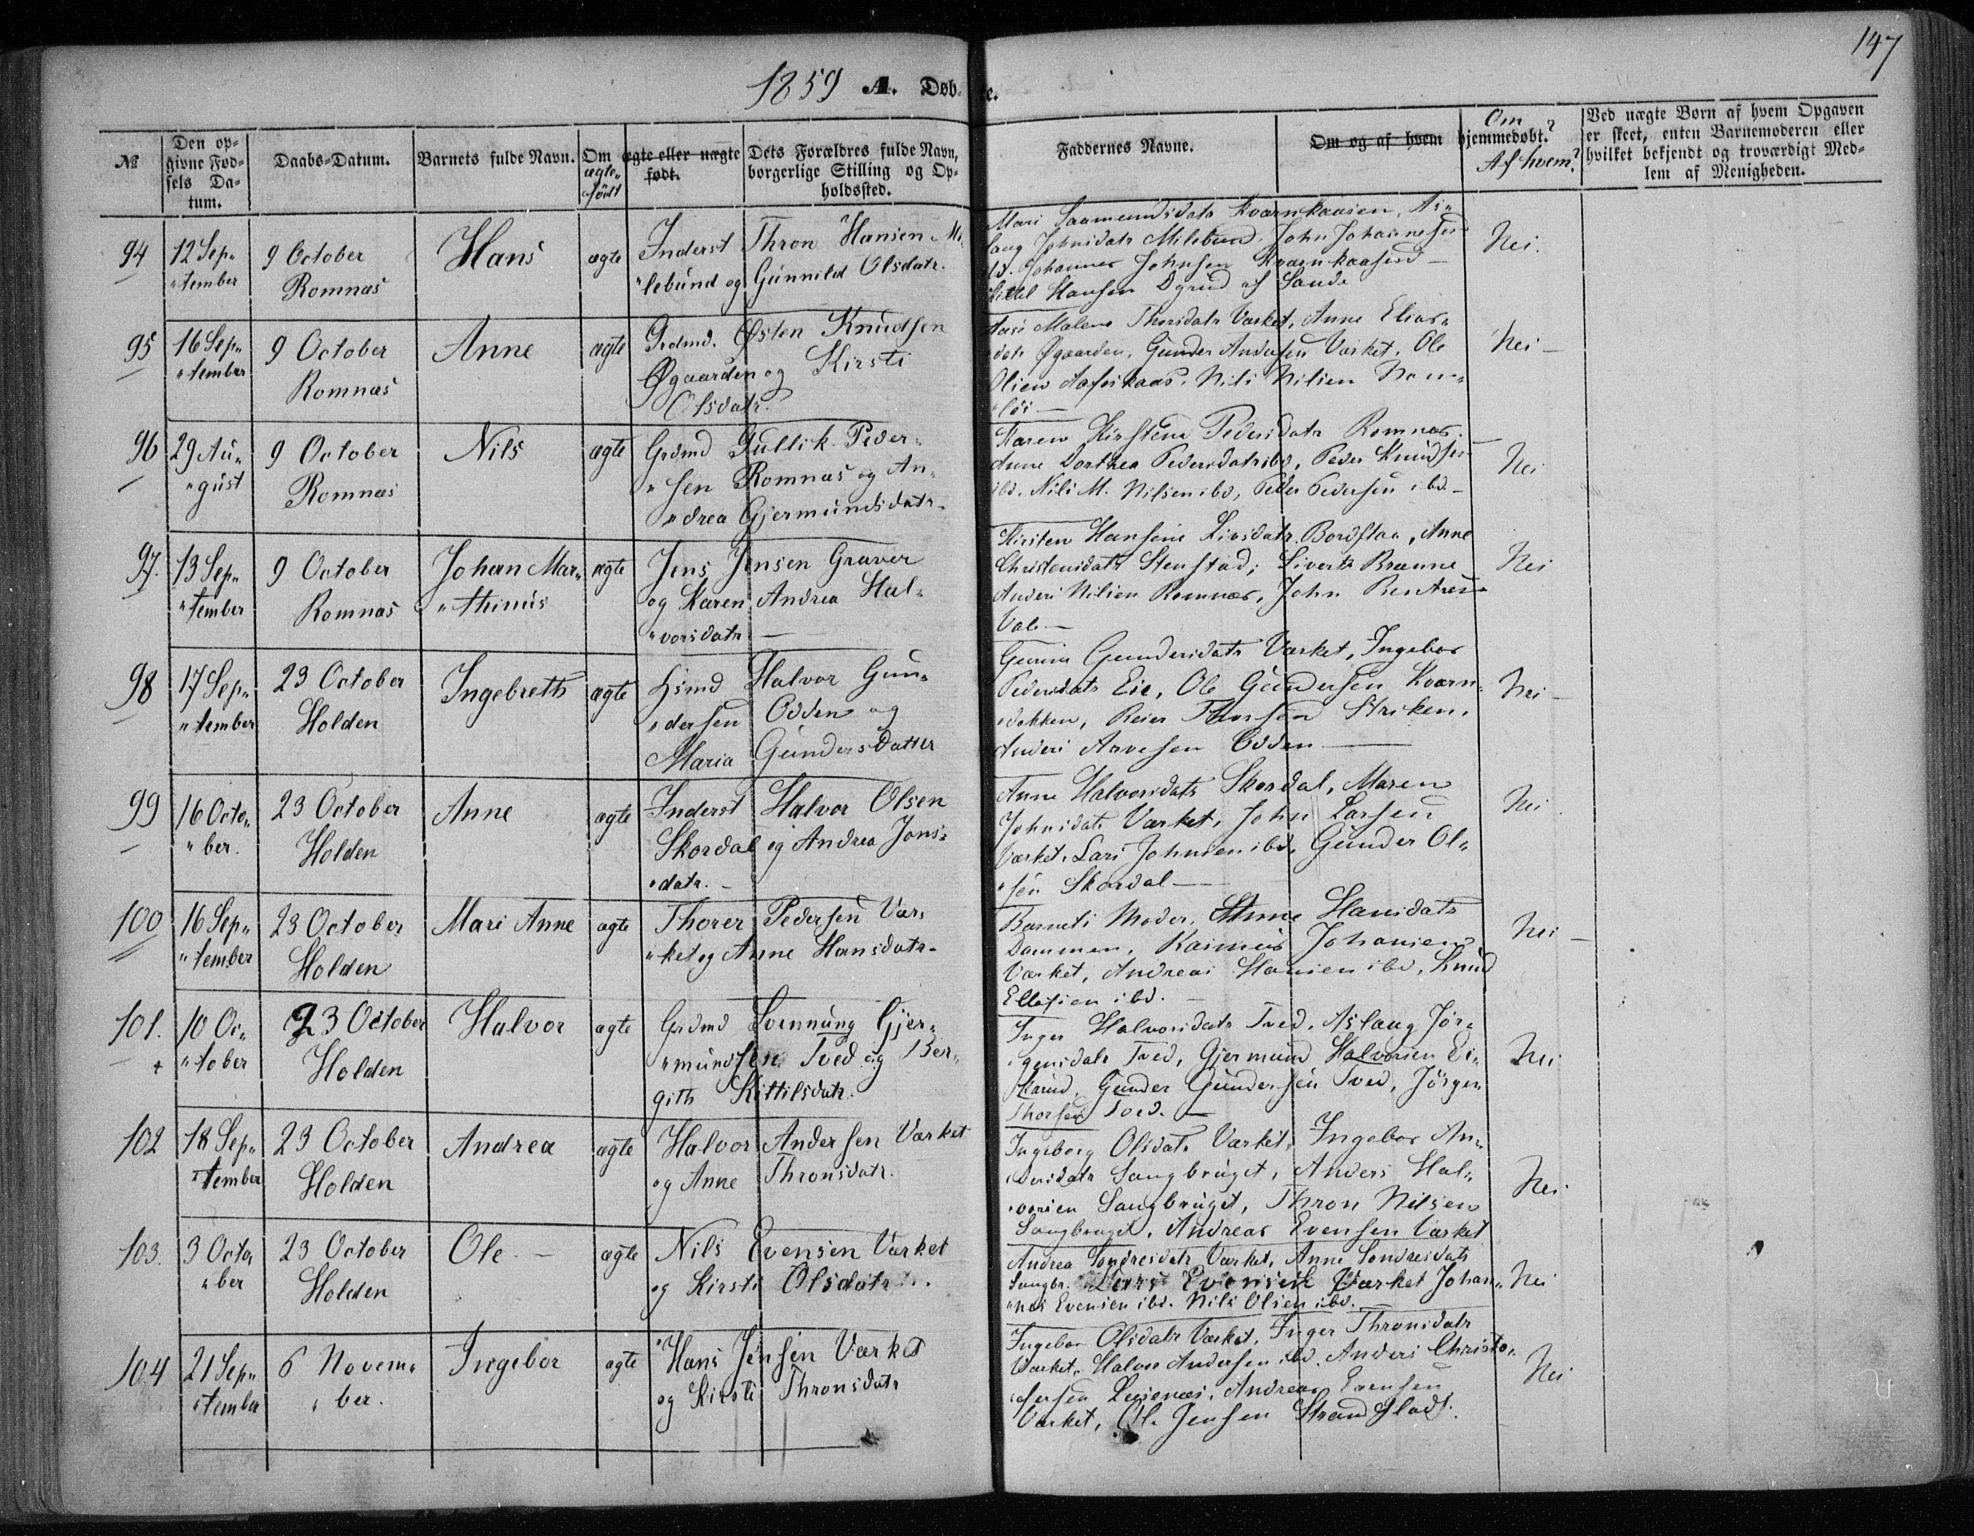 147
1859 A. Døbte.
№
Den opgivne Fødsels Datum.
Daabs-Datum.
Barnets fulde Navn.
Om ægte eller uægte født.
ægte født
Dets Forældres fulde Navn, borgerlige Stilling og Opholdssted.
Faddernes Navne.
Om og af hvem hjemmedøbt?
Om
Af hvem?
Ved uægte Børn af hvem Opgaven er skeet, enten Barnemoderen eller hvilket bekjendt og troværdigt Medlem af Menigheden.
94
12 Sep„
„tember
9 October
Romnæs
Hans
ægte
Inderst Thron Hansen Mi„
„lebund og Gunnild Olsdatr.
Mari Saamundsdatr Kværnkaasen, As„
laug Johnsdatr Milebund. John Johannesen
ibd. Johannes Johnsen Kværnkaasen
Kittel Hansen Dgrud af Sande
Nei.
95
16 Sep„
„tember
9 October
Romnæs
Anne
ægte
Grdmd. Østen Knudsen
Øgaarden og Kirsti
Olsdatr.
Malene Thorsdatr Værket, Anne Elias„
datr Øgaarden, Gunder Andersen Værket, Ole
Olsen Aasskaas, Nils Nilsen
Nei –
96
29 Au„
„gust
9 October
Romnæs
Nils
ægte
Grdmd Gullik Peder„
„sen Romnæs og An„
„drea Gjermundsdatr.
Karen Kirstine Pedersdatr Romnæs.
Anne Dorthea Pedersdatr ibd, Peder Knudsen
ibd. Nils M. Nilsen ibd, Peder Pedersen ibd –
Nei
97.
13 Sep„
„tember
9 October
Romnæs
Johan Mar„
„thinus
ægte
Jens Jensen Graver
og Karen Andrea Hal„
„vorsdatr –
Kirsten Hansine Livsdatr Bordstaa, Anne
Christensdatr Stenstad; Sivert Brænne
Anders Nilsen Romnæs, John
Vale –
Nei
98
17 Sep„
„tember
23 October
Holden
Ingebreth
ægte
Hsmd Halvor Gun„
„dersen Odden og
Maria Gundersdatter
Gundersdatr Værket, Ingebor
Pedersdatr Eie, Ole Gundersen Kværn„
„dokken, Reier Thorsen Striken,
Anders Arvesen Odden –
Nei –
99
16 Octo„
„ber.
23 October
Holden
Anne
ægte
Inderst Halvor Olsen
Skordal og Andrea Jons„
„datr. –
Anne Halvorsdatr Skordal, Maren
Johnsdatr Værket, John Larsen
Værket. Lars Johnsen ibd, Gunder Ol„
„sen Skordal –
Nei
100
16 Sep„
„tember
23 October
Holden
Mari Anne
ægte
Thorer Pedersen Vær„
„ket og Anne Hansdatr.
Barnets Moder, Anne Hansdatr
Dammen, Rasmus Johansen
Værket, Andreas Hansen ibd, Knud
Ellefsen ibd. –
Nei –
101.
10 Oc„
„tober
23 October
Holden
Halvor
ægte
Grdmd Svennung Gjer„
„mundsen Tved og Ber„
gith Kittilsdatr.
Inger Halvorsdatr Tved, Aslaug Jør„
gensdatr Tved, Gjermund Halvorsen Ei„
Gunder Gundersen Tved, Jørgen
Thorsen Tved. –
Nei
102
18 Sep„
„tember
23 October
Holden
Andrea
ægte
Halvor Andersen Værket
og Anne Thronsdatr.
Ingeborg Olsdatr Værket, Ingebor An„
dersdatr Saugbruget, Anders Hal„
„vorsen Saugbruget, Thron Nilsen
Saugbruget, Andreas Evensen Værket
Nei
103.
3 Octo„
„ber
23 October
Holden
Ole –
ægte
Nils Evensen Værket
og Kirsti Olsdatr.
Andrea Sondresdatr Værket, Anne Sondresdatr
Saugbr. Evensen Værket Johan„
„nes Evensen ibd. Nils Olsen ibd.
Nei
104
21 Sep„
„tember
6 Novem„
„ber.
Ingebor
ægte
Hans Jensen Værket
og Kirsti Thronsdatr
Ingebor Olsdatr Værket, Inger Thronsdatr
Værket, Halvor Andersen ibd. Anders Christo„
„fersen Andreas Evensen
Værket, Ole Jensen
Nei